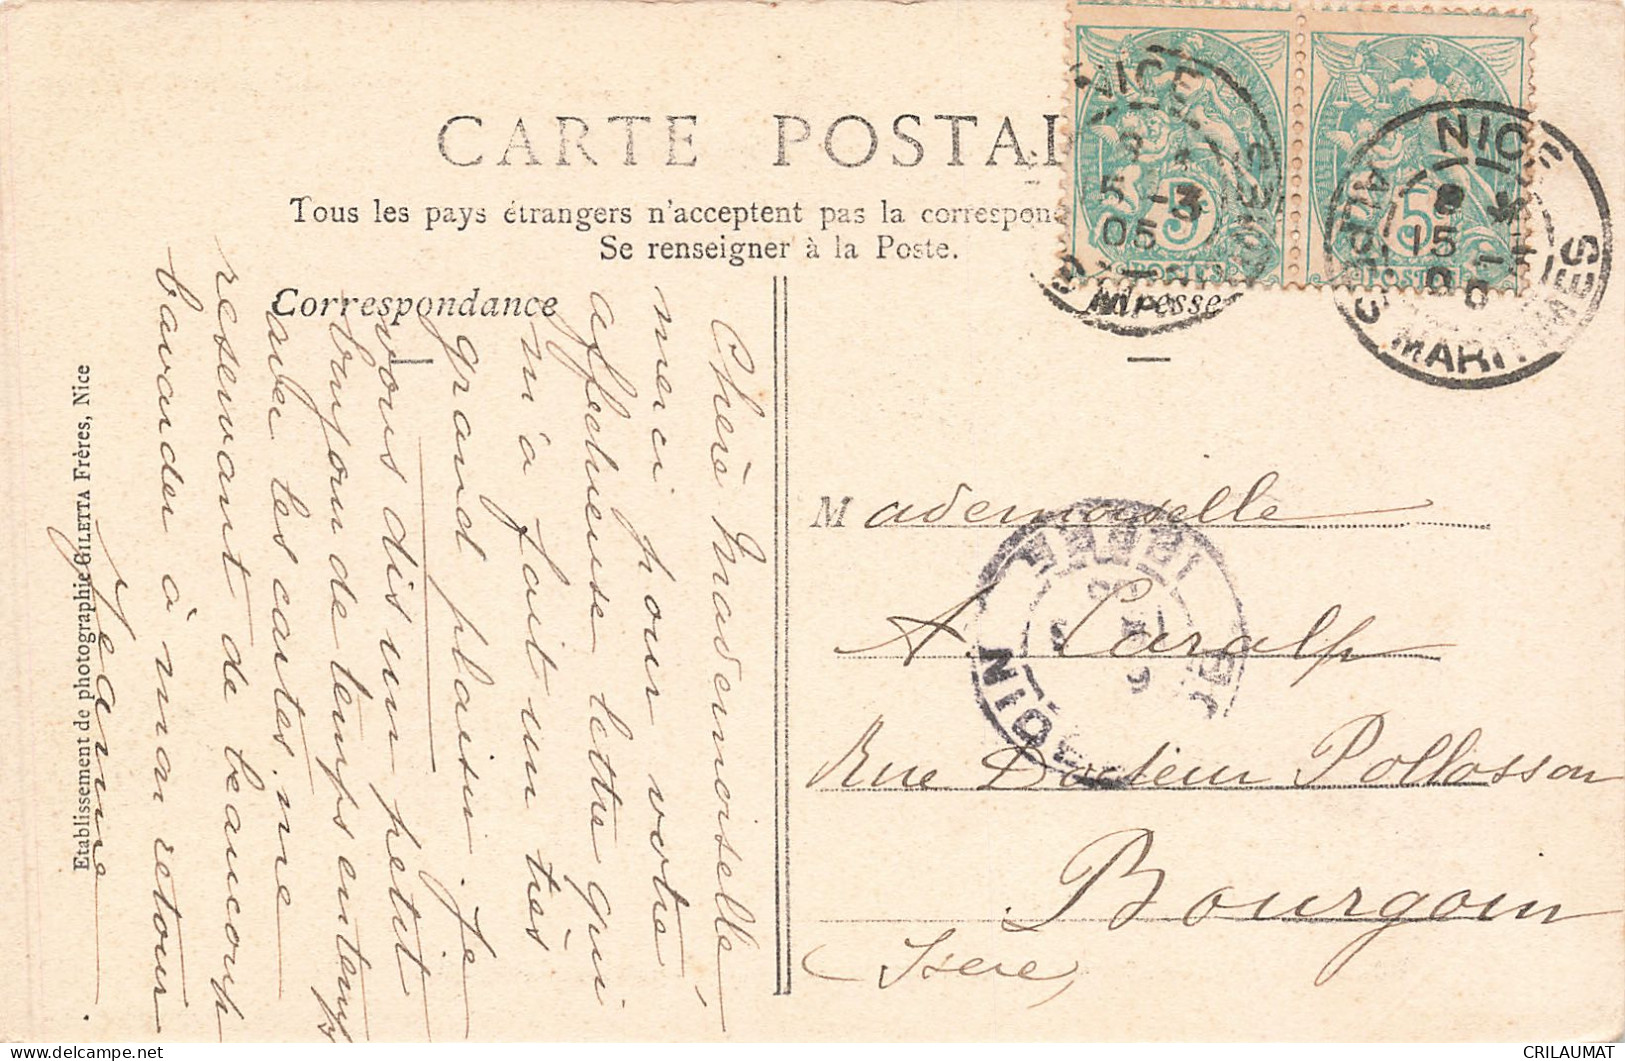 CARTE POSTAL
Tous les pays étrangers n'acceptent pas la correspon
Se renseigner à la Poste.
Correspondance
Adresse
Chère Mademoiselle
merci pour votre
affectueuse lettre qui
m'a fait un très
grand plaisir. Je
vous dis un petit
bonjour de temps en temps
avec les cartes, me
reservant de beaucoup
bavarder à mon retour
Jeanne
Mademoiselle
A. Caralp
Rue Docteur Pollosson
Bourgoin
(Isère)
Etablissement de photographie GILETTA Frères, Nice
NICE
5 -3
05
5c
POSTES
NICE
15
5
POSTES
ALPES MARITIMES
CRILAUMAT